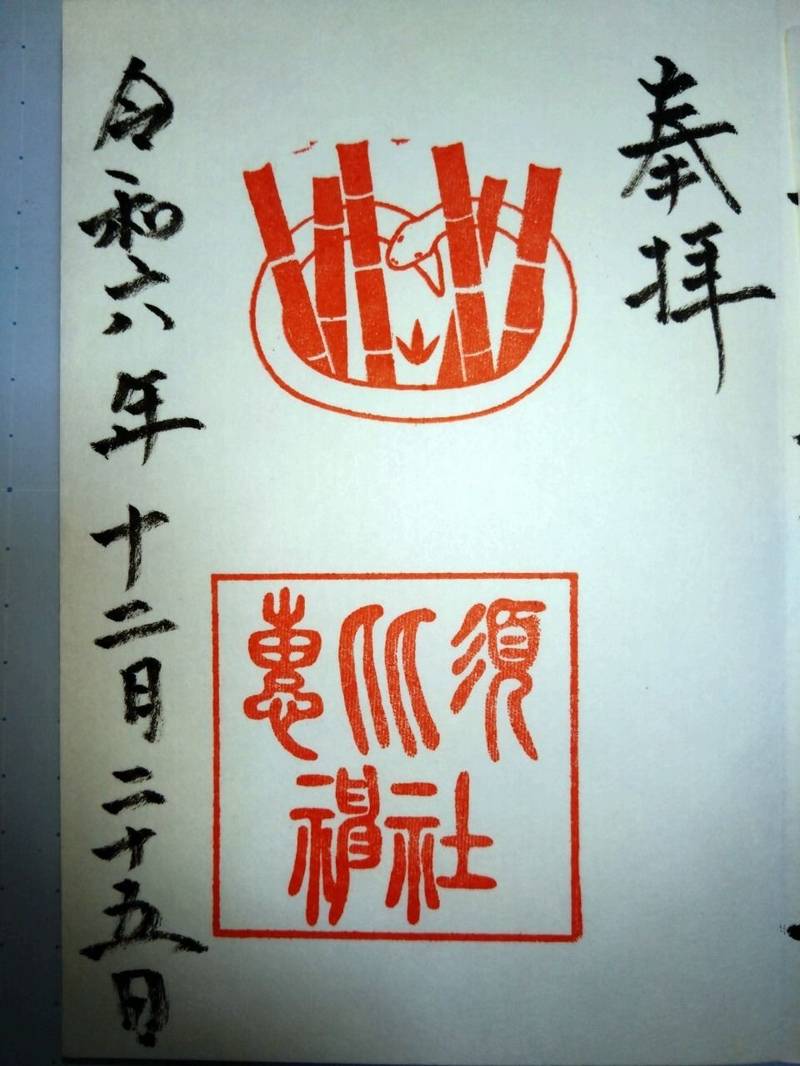 奉拝
惠比須
神社
令和六年十二月二十五日